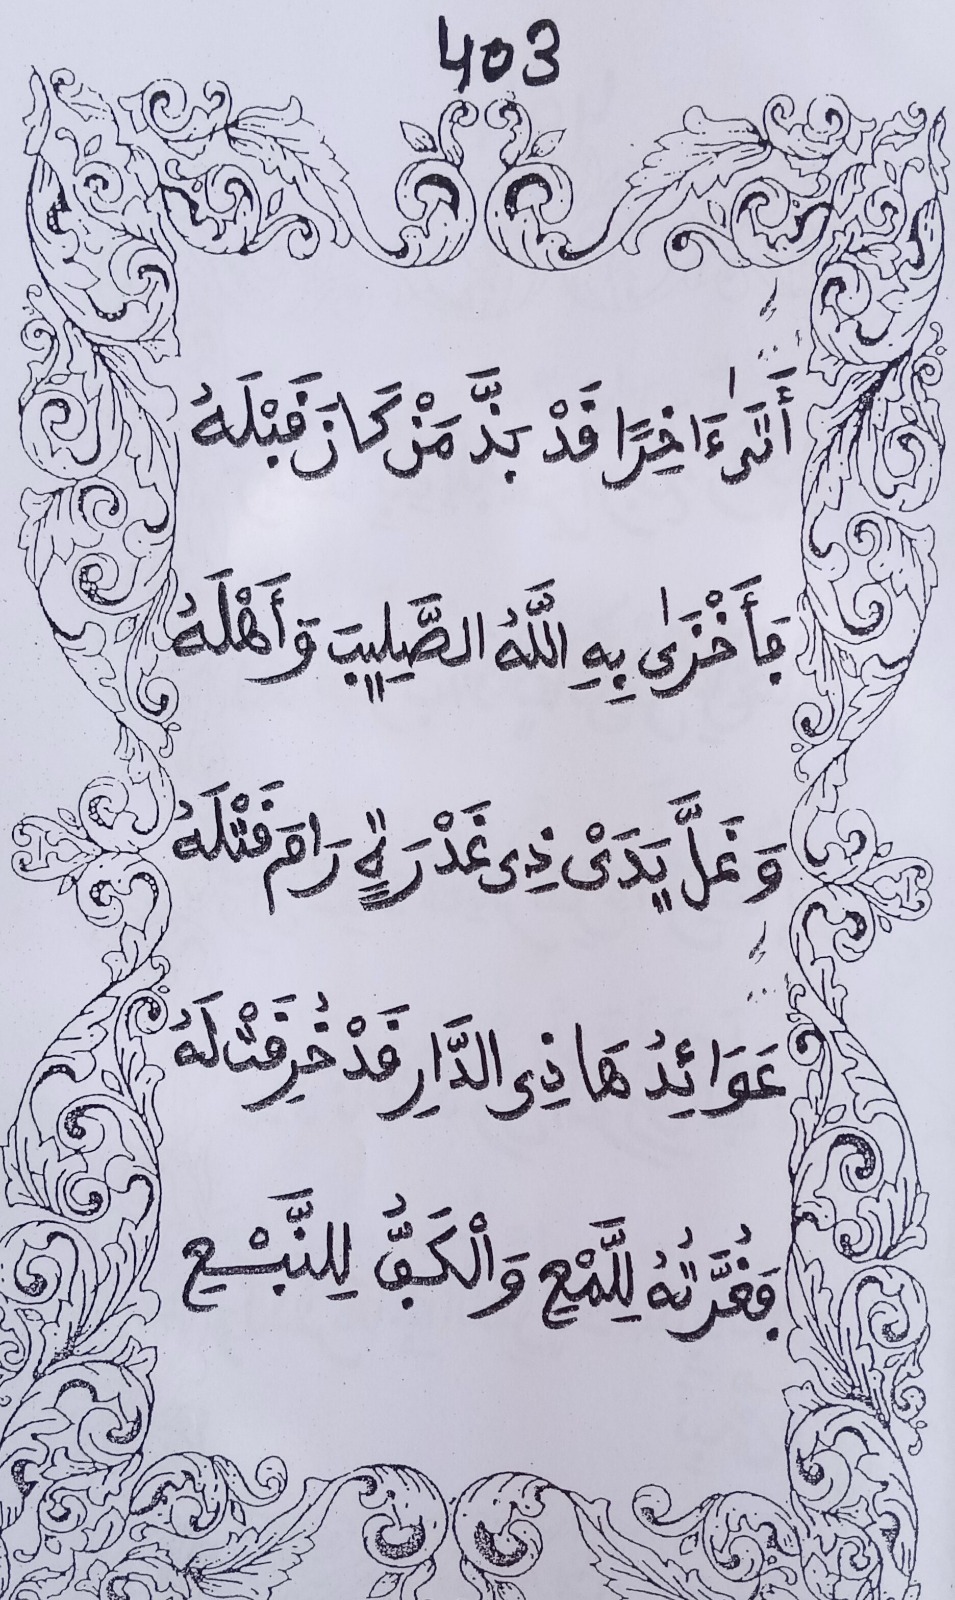 403
أَتَىٰ ءَاخِرًا قَدْ بَذَّ مَنْ كَانَ قَبْلَهُ
فَأَخْزَىٰ بِهِ اللَّهُ الصَّلِيبَ وَأَهْلَهُ
وَغَلَّ يَدَىْ ذِى غَدْرَةٍ رَامَ قَتْلَهُ
عَوَائِدُ هَاذِى الدَّارِ قَدْ خُرِقَتْ لَهُ
فَغُرَّتُهُ لِلَّمْعِ وَالْكَفُّ لِلنَّبْعِ